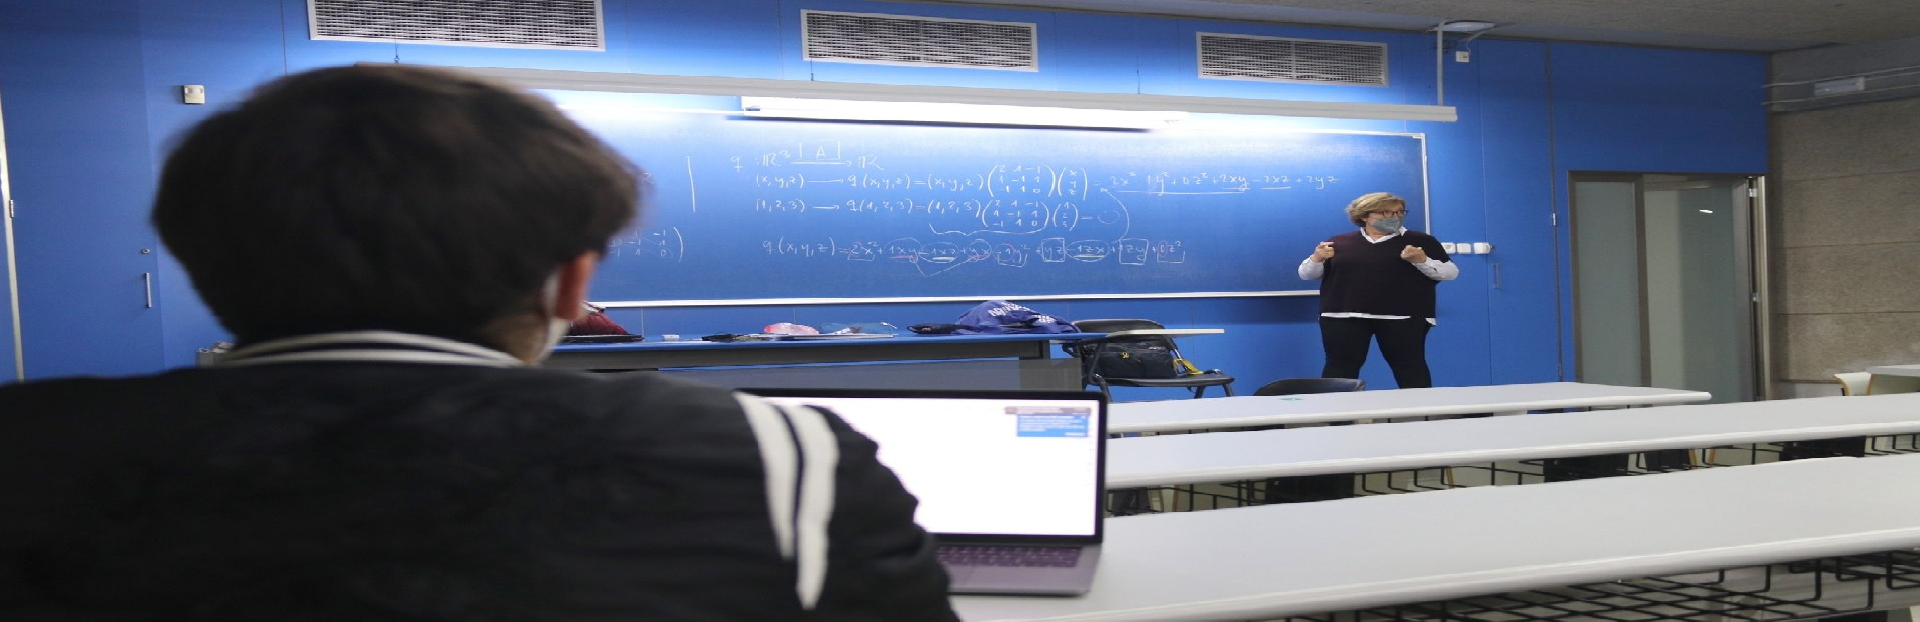 q : ℝ³ —|A|→ ℝ
(x,y,z) ⟶ q(x,y,z) = (x,y,z) (2 1 -1 / 1 -1 1 / -1 1 0) (x / y / z) = 2x² - 1y² + 0z² + 2xy - 2xz + 2yz
(1,2,3) ⟶ q(1,2,3) = (1,2,3) (2 1 -1 / 1 -1 1 / -1 1 0) (1 / 2 / 3) =
q(x,y,z) = 2x² + 1xy - 1xz + yx - 1y² + yz - 1zx + 1zy + 0z²